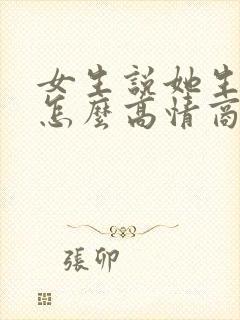 女生說她生
怎麼高情商
張卯